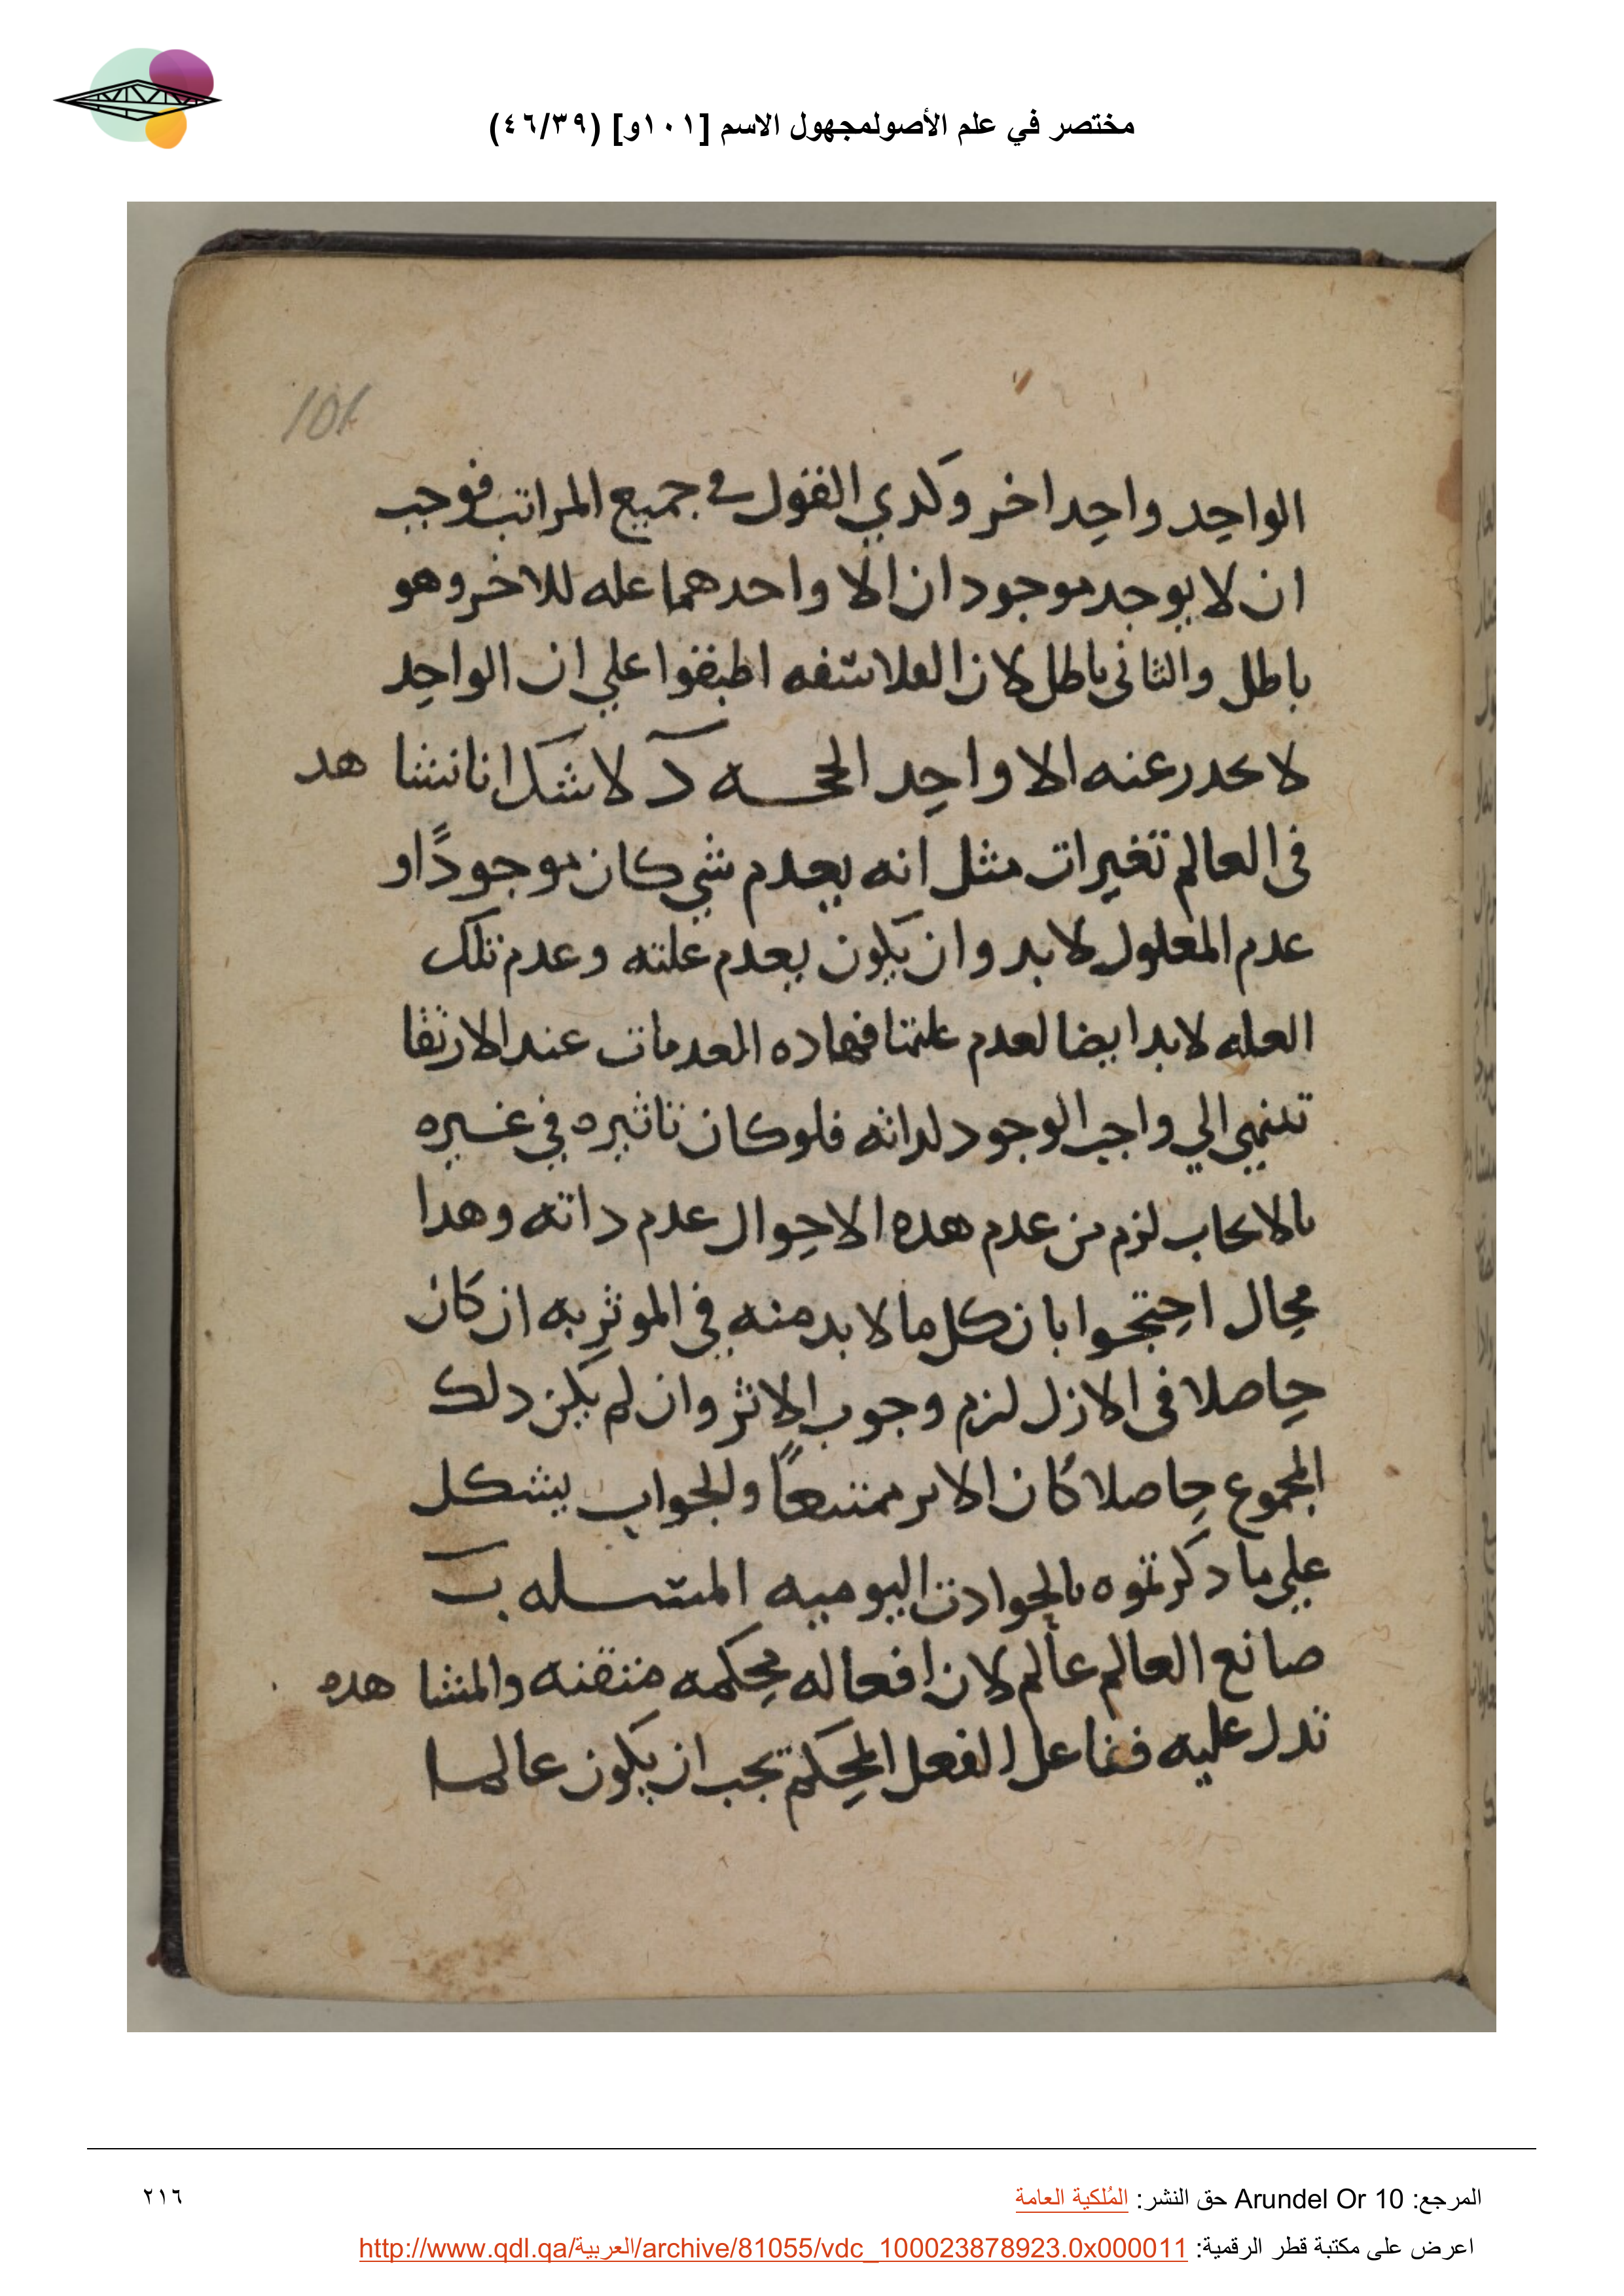 مختصر في علم الأصولمجهول الاسم [١٠١و] (٤٦/٣٩)
101
الواحد واحد اخر وكدي القول في جميع المراتب فوجب
ان لا يوجد موجود ان الا واحدهما عله للاخر وهو
باطل والثانى باطل لان الفلاسفه اطبقوا علي ان الواحد
لا يصدر عنه الا واحد الحجـــه د لا شك انا نشاهد
فى العالم تغيرات مثل انه يعدم شي كان موجودًا و
عدم المعلول لا بد وان يكون بعدم علته وعدم تلك
العله لا بد ايضا لعدم علتها فهاده المعدمات عند الارتقا
تنتهي الي واجب الوجود لداته فلو كان تاثيره في غيره
بالايجاب لزم من عدم هده الاحوال عدم داته وهدا
محال احتجوا بان كل ما لا بد منه في الموثر به ان كان
حاصلا فى الازل لزم وجوب الاثر وان لم يكن دلك
المجموع حاصلا كان الاثر ممتنعاً والجواب يشكل
علي ما دكرتموه بالحوادث اليوميه المسـله ب
صانع العالم عالم لان افعاله محكمه متقنه والمشاهده
تدل عليه ففاعل الفعل المحكم يجب ان يكون عالما
المرجع: Arundel Or 10 حق النشر: المُلكية العامة
٢١٦
اعرض على مكتبة قطر الرقمية: http://www.qdl.qa/العربية/archive/81055/vdc_100023878923.0x000011